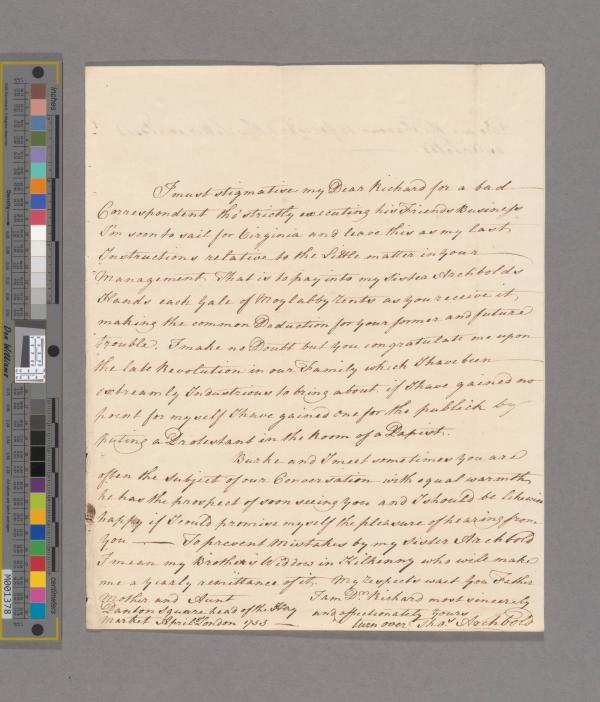 I must stigmatise my Dear Richard for a bad
Correspondent tho' strictly executing his Friends Business
I'm soon to sail for Virginia and leave this as my last
Instructions relative to the little matter in your
Management. That is to pay into my Sister Archbolds
Hands each Gale of Moylabby rents as you receive it,
making the common Deduction for your former and future
trouble. I make no Doubt but you congratulate me upon
the late Revolution in our Family which I have been
extreamly Industrious to bring about, if I have gained no
point for myself I have gained one for the publick by
puting a Protestant in the Room of a Papist.
Burke and I meet sometimes you are
often the subject of our Conversation with equal warmth,
he has the prospect of soon seeing you and I should be likewise
happy if I could promise myself the pleasure of hearing from
you — To prevent Mistakes by my Sister Archbold
I mean my Brother's Widow in Kilkenny who will make
me a yearly remittance of it. My respects wait you Father
Mother and Aunt
I am Dr. Richard most sincerely
and affectionately yours
Square head of the Hay
Market April London 1755 —
turn over Thos Archbold
inches
centimeters
Don Williams
M001378